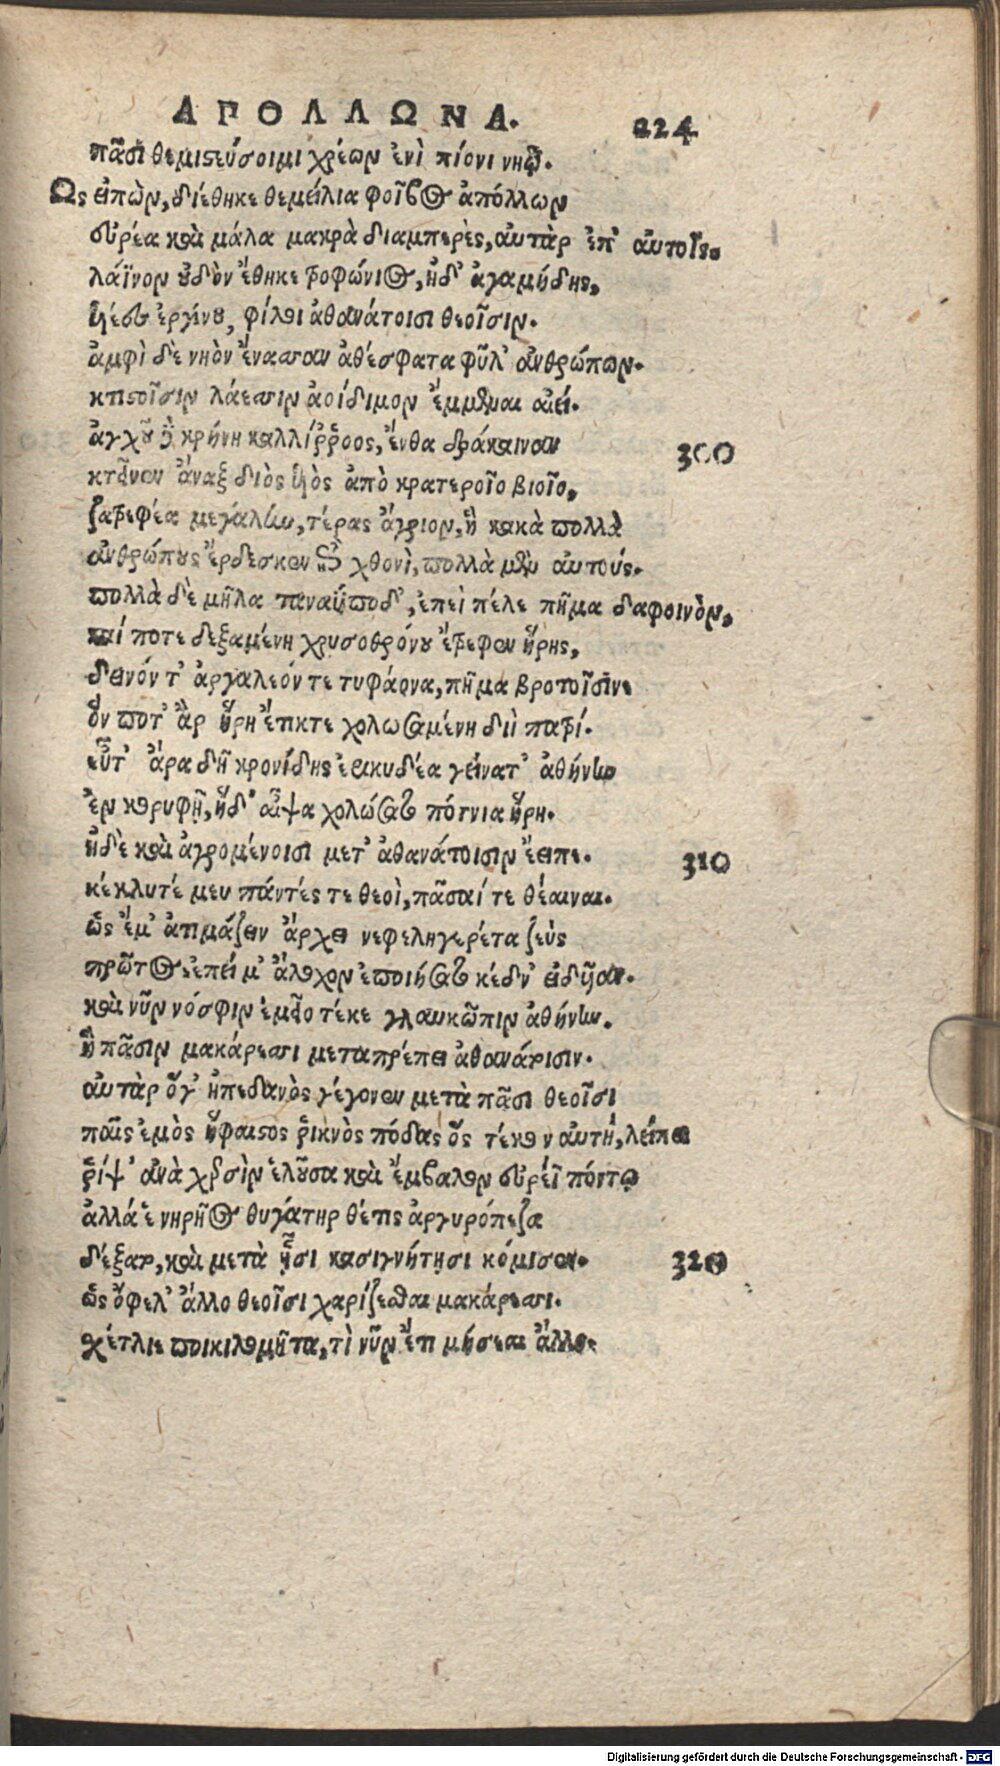 ΑΠΟΛΛΩΝΑ. 224
πᾶσι θεμιστεύσοιμι χρέων ἐνὶ πίονι νηῷ.
Ως εἰπὼν, διέθηκε θεμείλια φοῖβος ἀπόλλων
εὐρέα καὶ μάλα μακρὰ διαμπερὲς, αὐτὰρ ἐπ' αὐτοῖς.
λάϊνον οὐδὸν ἔθηκε τροφώνιος, ἠδ' ἀγαμήδης,
υἱέες ἐργίνου, φίλοι ἀθανάτοισι θεοῖσιν.
ἀμφὶ δὲ νηὸν ἔνασσαν ἀθέσφατα φῦλ' ἀνθρώπων.
κτιστοῖσιν λάεσσιν ἀοίδιμον ἔμμεναι αἰεί.
ἀγχοῦ δὲ κρήνη καλλίῤῥοος, ἔνθα δράκαιναν 300
κτεῖνεν ἄναξ διὸς υἱὸς ἀπὸ κρατεροῖο βιοῖο,
ζατρεφέα μεγάλην, τέρας ἄγριον, ἣ κακὰ πολλὰ
ἀνθρώπους ἔρδεσκεν ἐπὶ χθονὶ, πολλὰ μὲν αὐτούς.
πολλὰ δὲ μῆλα ταναύποδ', ἐπεὶ πέλε πῆμα δαφοινὸν,
καί ποτε δεξαμένη χρυσοθρόνου ἔτρεφεν ἥρης,
δεινόν τ' ἀργαλεόν τε τυφάονα, πῆμα βροτοῖσιν.
ὅν ποτ' ἂρ ἥρη ἔτικτε χολωσαμένη διὶ πατρί.
εὖτ' ἄρα δὴ κρονίδης ἐρικυδέα γείνατ' ἀθήνην
ἐν κορυφῇ, ἡ δ' αἶψα χολώσατο πότνια ἥρη.
ἠδὲ καὶ ἀγρομένοισι μετ' ἀθανάτοισιν ἔειπε. 310
κέκλυτέ μευ πάντές τε θεοὶ, πᾶσαί τε θέαιναι.
ὡς ἔμ' ἀτιμάζειν ἄρχει νεφεληγερέτα ζεὺς
πρῶτος ἐπεί μ' ἄλοχον ἐποιήσατο κέδν' εἰδυῖαν.
καὶ νῦν νόσφιν ἐμεῖο τέκε γλαυκῶπιν ἀθήνην.
ἣ πᾶσιν μακάρεσσι μεταπρέπει ἀθανάτοισιν.
αὐτὰρ ὅγ' ἠπεδανὸς γέγονεν μετὰ πᾶσι θεοῖσι
παῖς ἐμὸς ἥφαιστος ῥικνὸς πόδας ὃς τέκον αὐτή, λείπει
ῥίψ' ἀνὰ χερσὶν ἑλοῦσα καὶ ἔμβαλον εὐρέϊ πόντῳ
ἀλλά ἑ νηρῆος θυγάτηρ θέτις ἀργυρόπεζα
δέξατο, καὶ μετὰ ᾗσι κασιγνήτῃσι κόμισεν. 320
ὡς ὄφελ' ἄλλο θεοῖσι χαρίζεσθαι μακάρεσσι.
σχέτλιε ποικιλομῆτα, τὶ νῦν ἔτι μήσεαι ἄλλο.
Digitalisierung gefördert durch die Deutsche Forschungsgemeinschaft - DFG